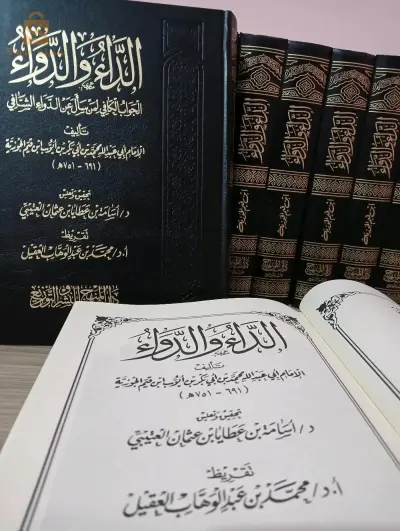 الدَّاءُ وَالدَّوَاءُ
الجواب الكافي لمن سأل عن الدواء الشافي
تأليف
الإمام أبي عبد الله محمد بن أبي بكر بن أيوب ابن قيم الجوزية
(٦٩١ - ٧٥١ هـ)
تحقيق وتعليق
د/ أسامة بن عطايا بن عثمان العتيبي
تقريظ
أ.د/ محمد بن عبد الوهاب العقيل
الداء والدواء
الداء والدواء
الداء والدواء
الداء والدواء
الدَّاءُ وَالدَّوَاءُ
تأليف
الإمام أبي عبد الله محمد بن أبي بكر بن أيوب ابن قيم الجوزية
(٦٩١ - ٧٥١ هـ)
تحقيق وتعليق
د/ أسامة بن عطايا بن عثمان العتيبي
تقريظ
أ.د/ محمد بن عبد الوهاب العقيل